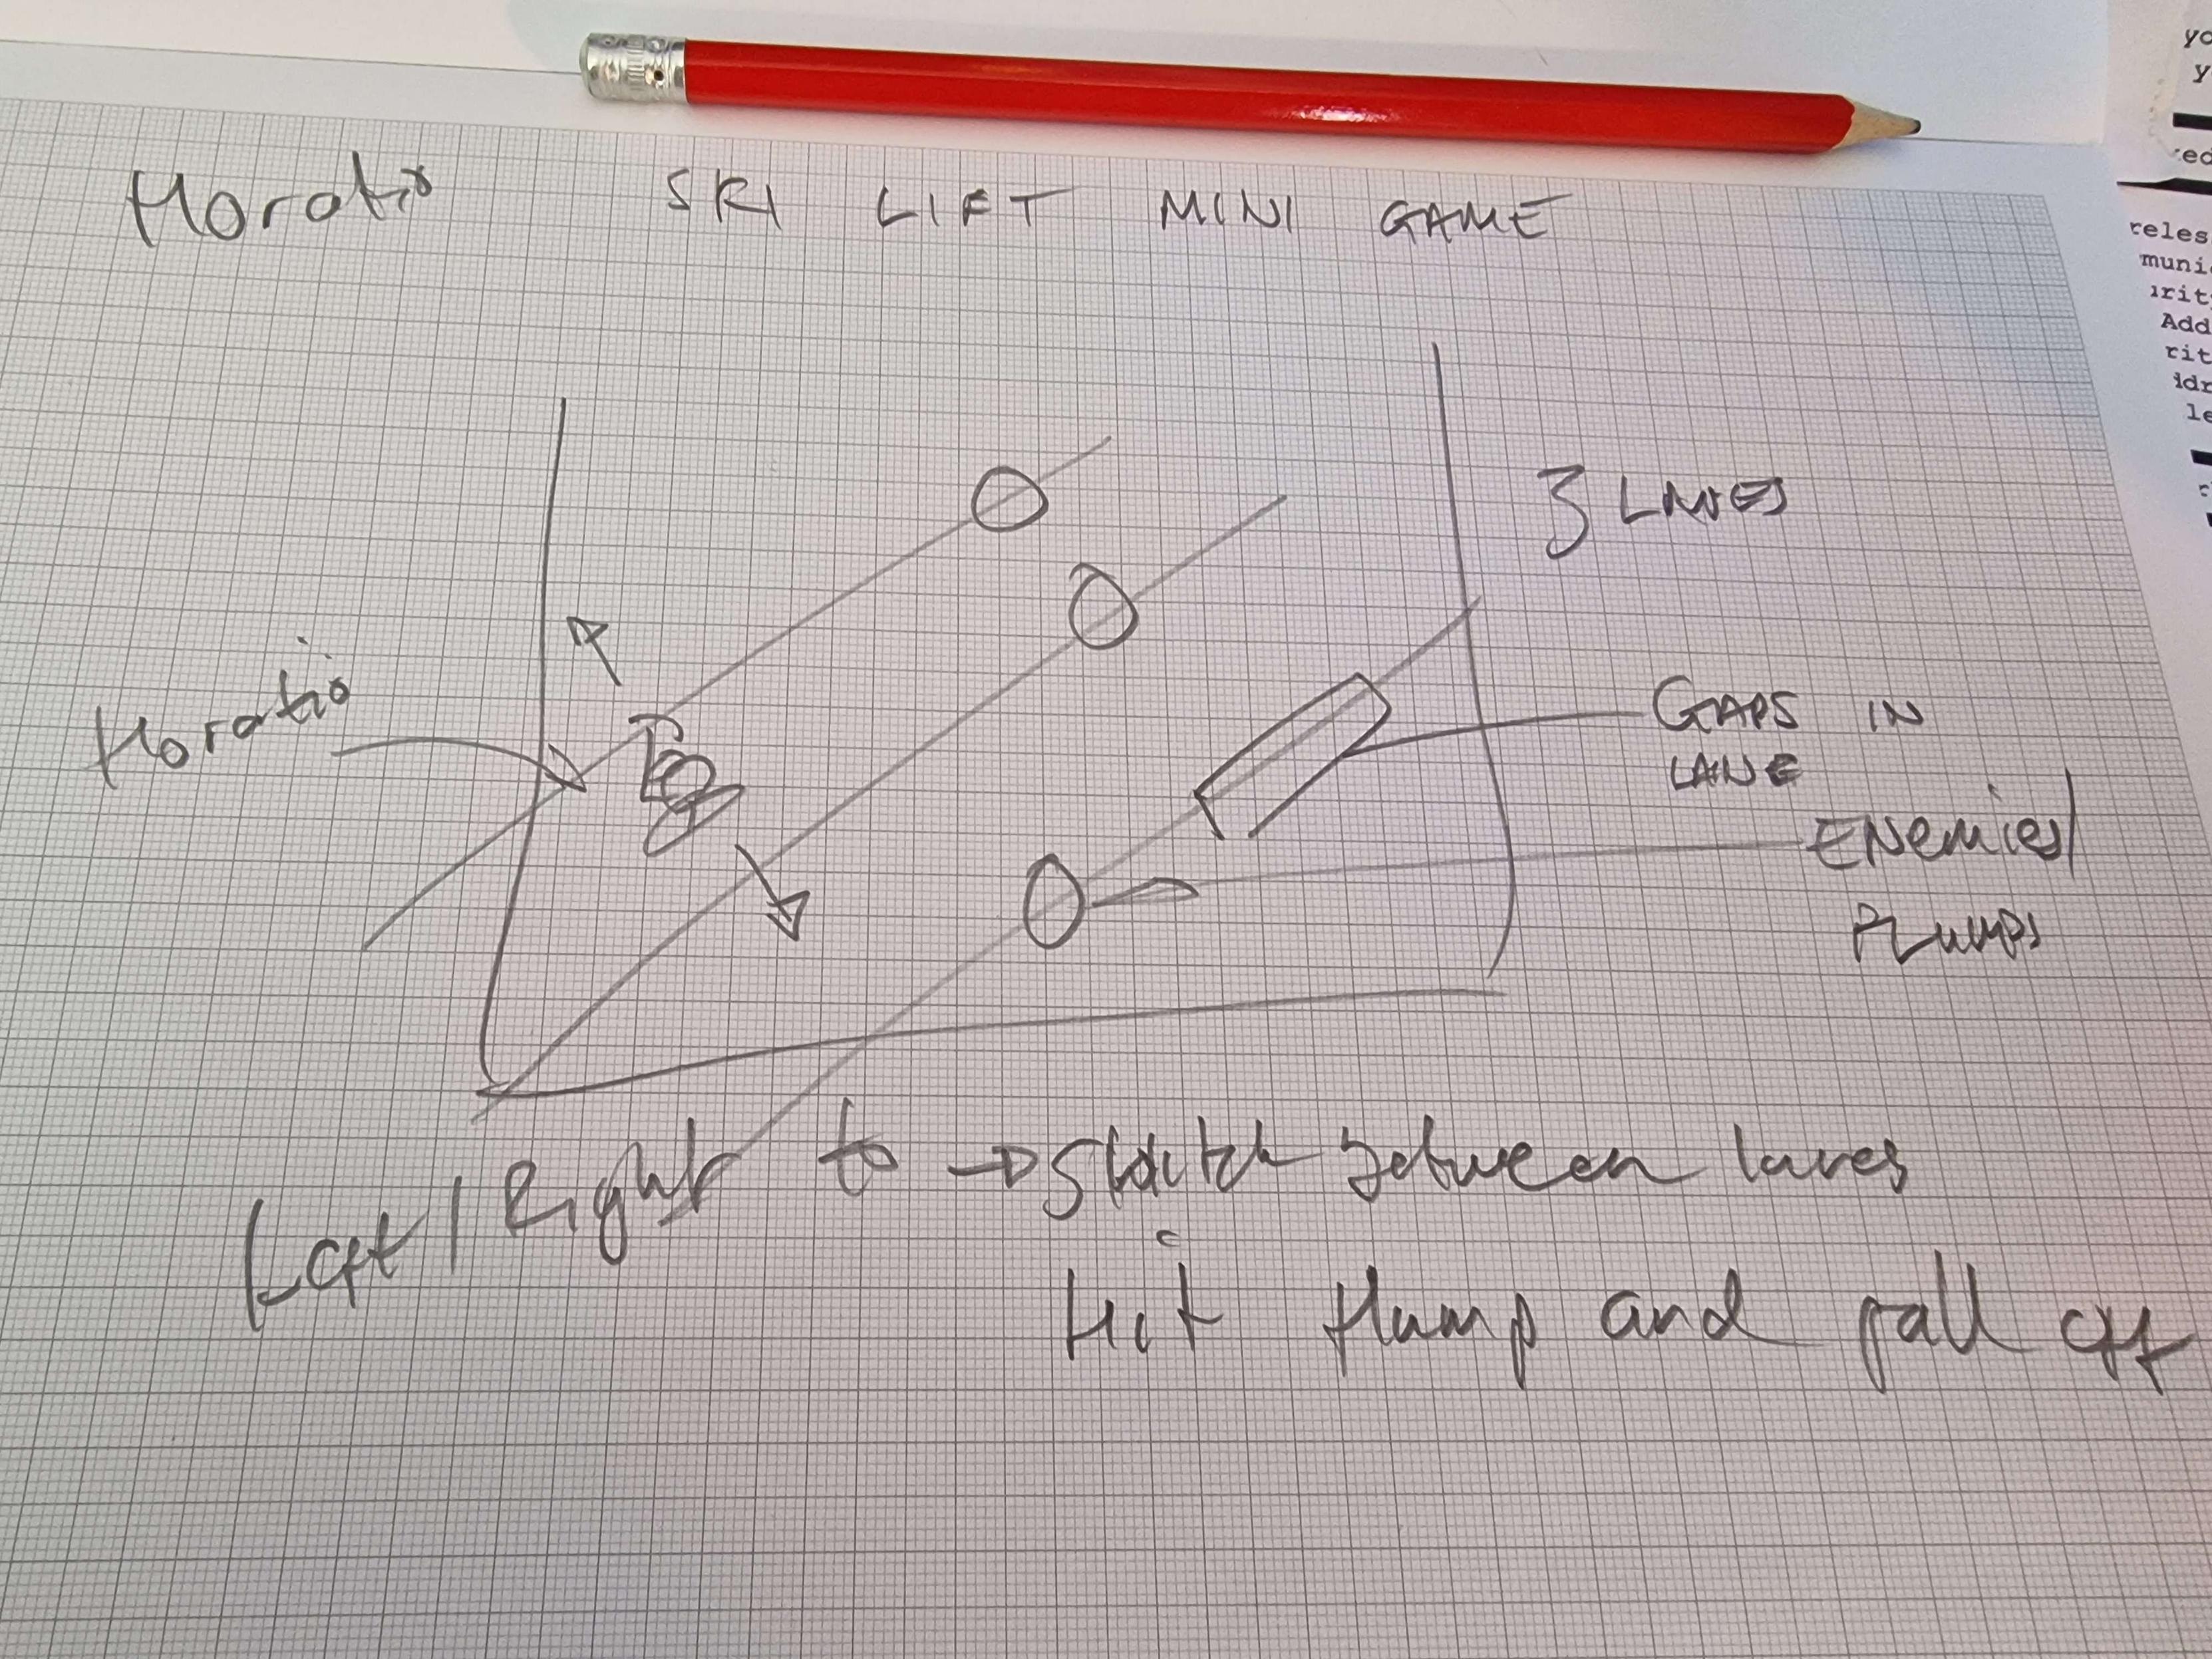 Horatio SKI LIFT MINI GAME
3 LANES
Horatio
GAPS IN
LANE
ENEMIES/
FLUMPS
Left / Right to → Switch between lanes
Hit flump and fall off
yo
y
reles
munic
Add
rit
le